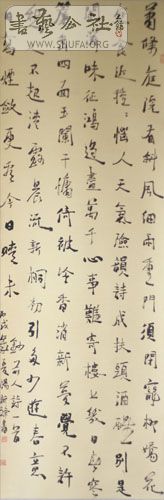 書藝公社
WWW.SHUFAI.ORG
蕭條庭院有斜風細雨重門須閉寵柳嬌花
寒食近種種惱人天氣險韻詩成扶頭酒醒別是
閒滋味征鴻過盡萬千心事難寄樓上幾日春寒
簾垂四面玉闌干慵倚被冷香消新夢覺不許
愁人不起清露晨流新桐初引多少遊春意
日高煙斂更看今日晴未